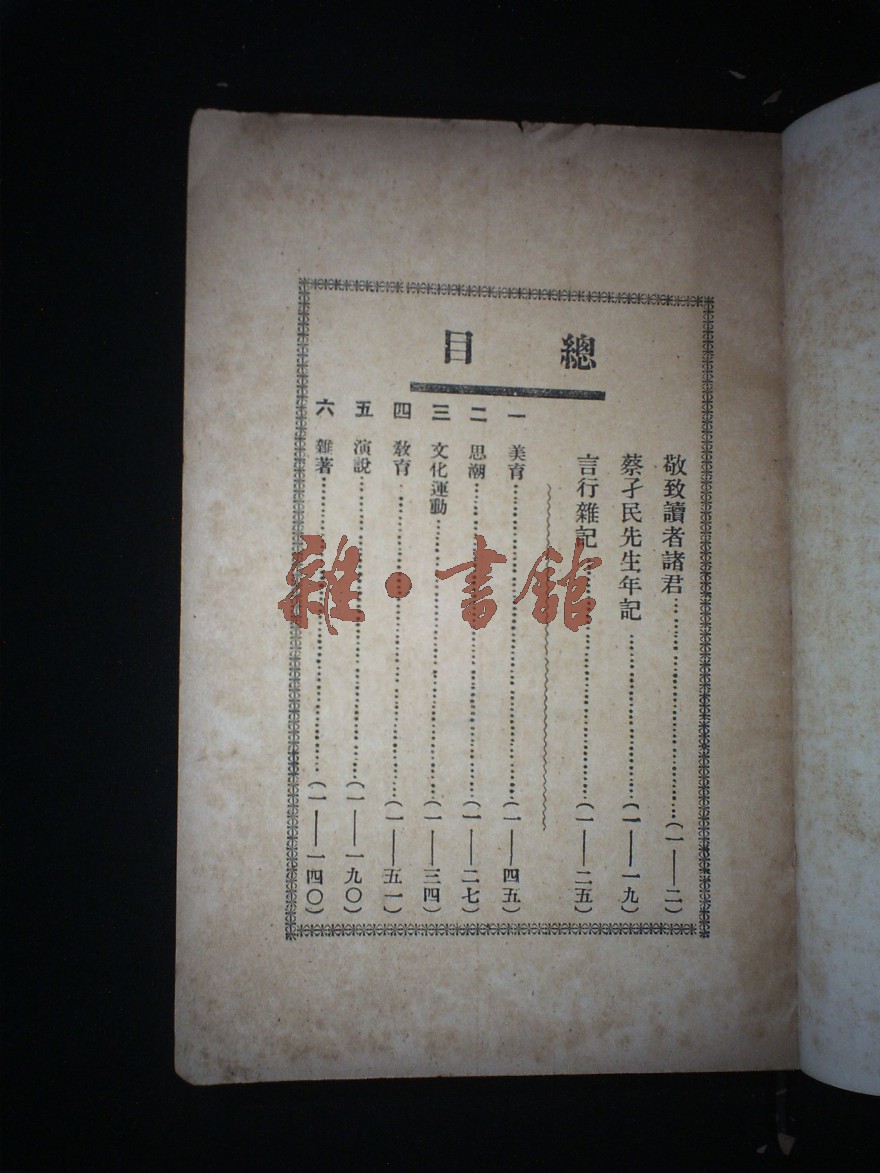 總目
敬致讀者諸君……(一——二)
蔡孑民先生年記……(一——一九)
言行雜記……(一——二五)
一 美育……(一——四五)
二 思潮……(一——二七)
三 文化運動……(一——三四)
四 教育……(一——五一)
五 演說……(一——一九〇)
六 雜著……(一——一四〇)
雜·書館